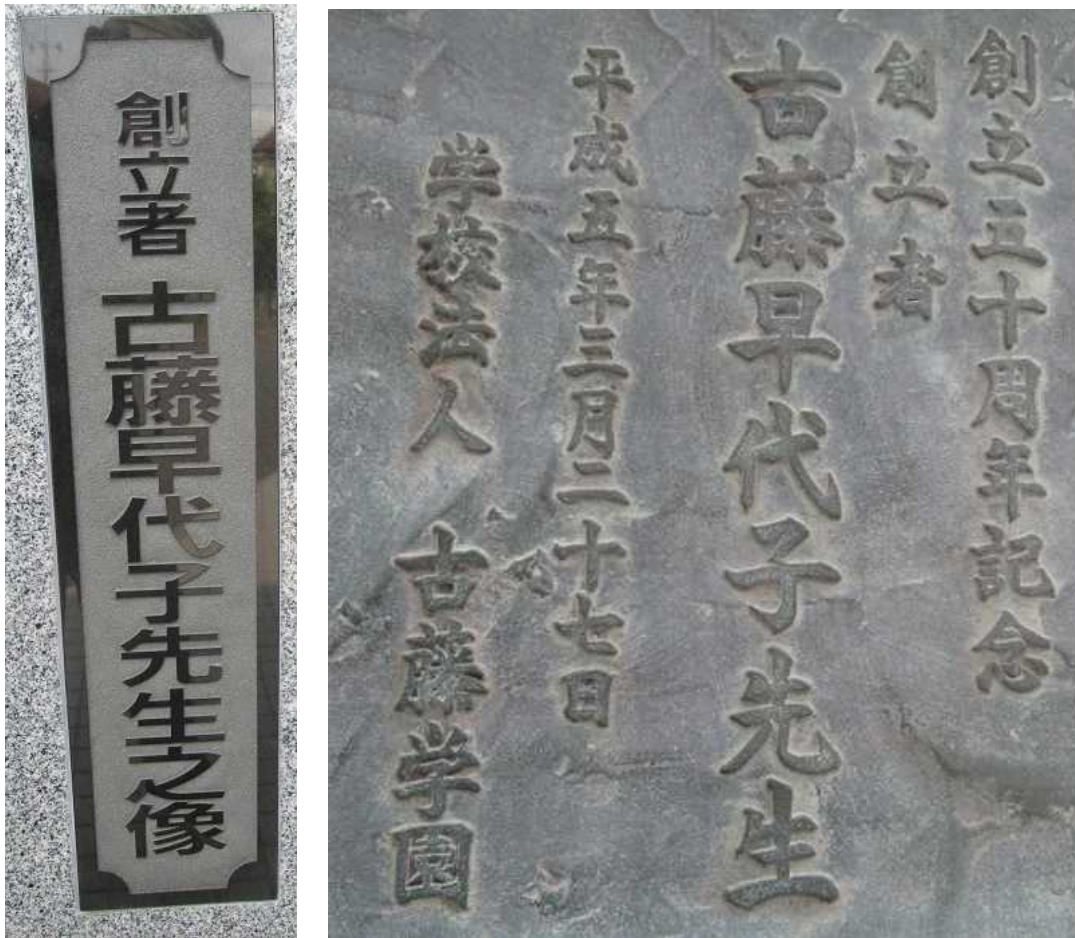 創立者 古藤早代子先生之像
創立三十周年記念
創立者
古藤早代子先生
平成五年三月二十七日
学校法人 古藤学園